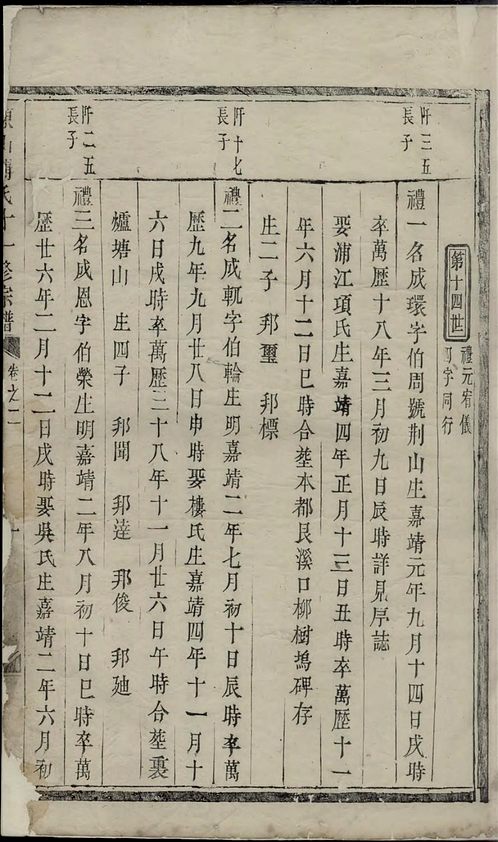 第十四世
禮元宥儀
可字同行
阡三五
長子
禮一名成環字伯周號荆山生嘉靖元年九月十四日戌時
卒萬歷十八年三月初九日辰時詳見序誌
娶浦江項氏生嘉靖四年正月十三日丑時卒萬歷十一
年六月十二日巳時合塟本都艮溪口柳樹塢碑存
生二子 邦璽 邦標
阡十七
長子
禮二名成軏字伯輪生明嘉靖二年七月初十日辰時卒萬
歷九年九月廿八日申時娶樓氏生嘉靖四年十一月十
六日戌時卒萬歷三十八年十一月廿六日午時合塟裏
爐塘山 生四子 邦聞 邦達 邦俊 邦廸
阡二五
長子
禮三名成恩字伯榮生明嘉靖二年八月初十日巳時卒萬
歷廿六年二月十二日戌時娶吳氏生嘉靖二年六月初
氏十一修宗譜
卷之二